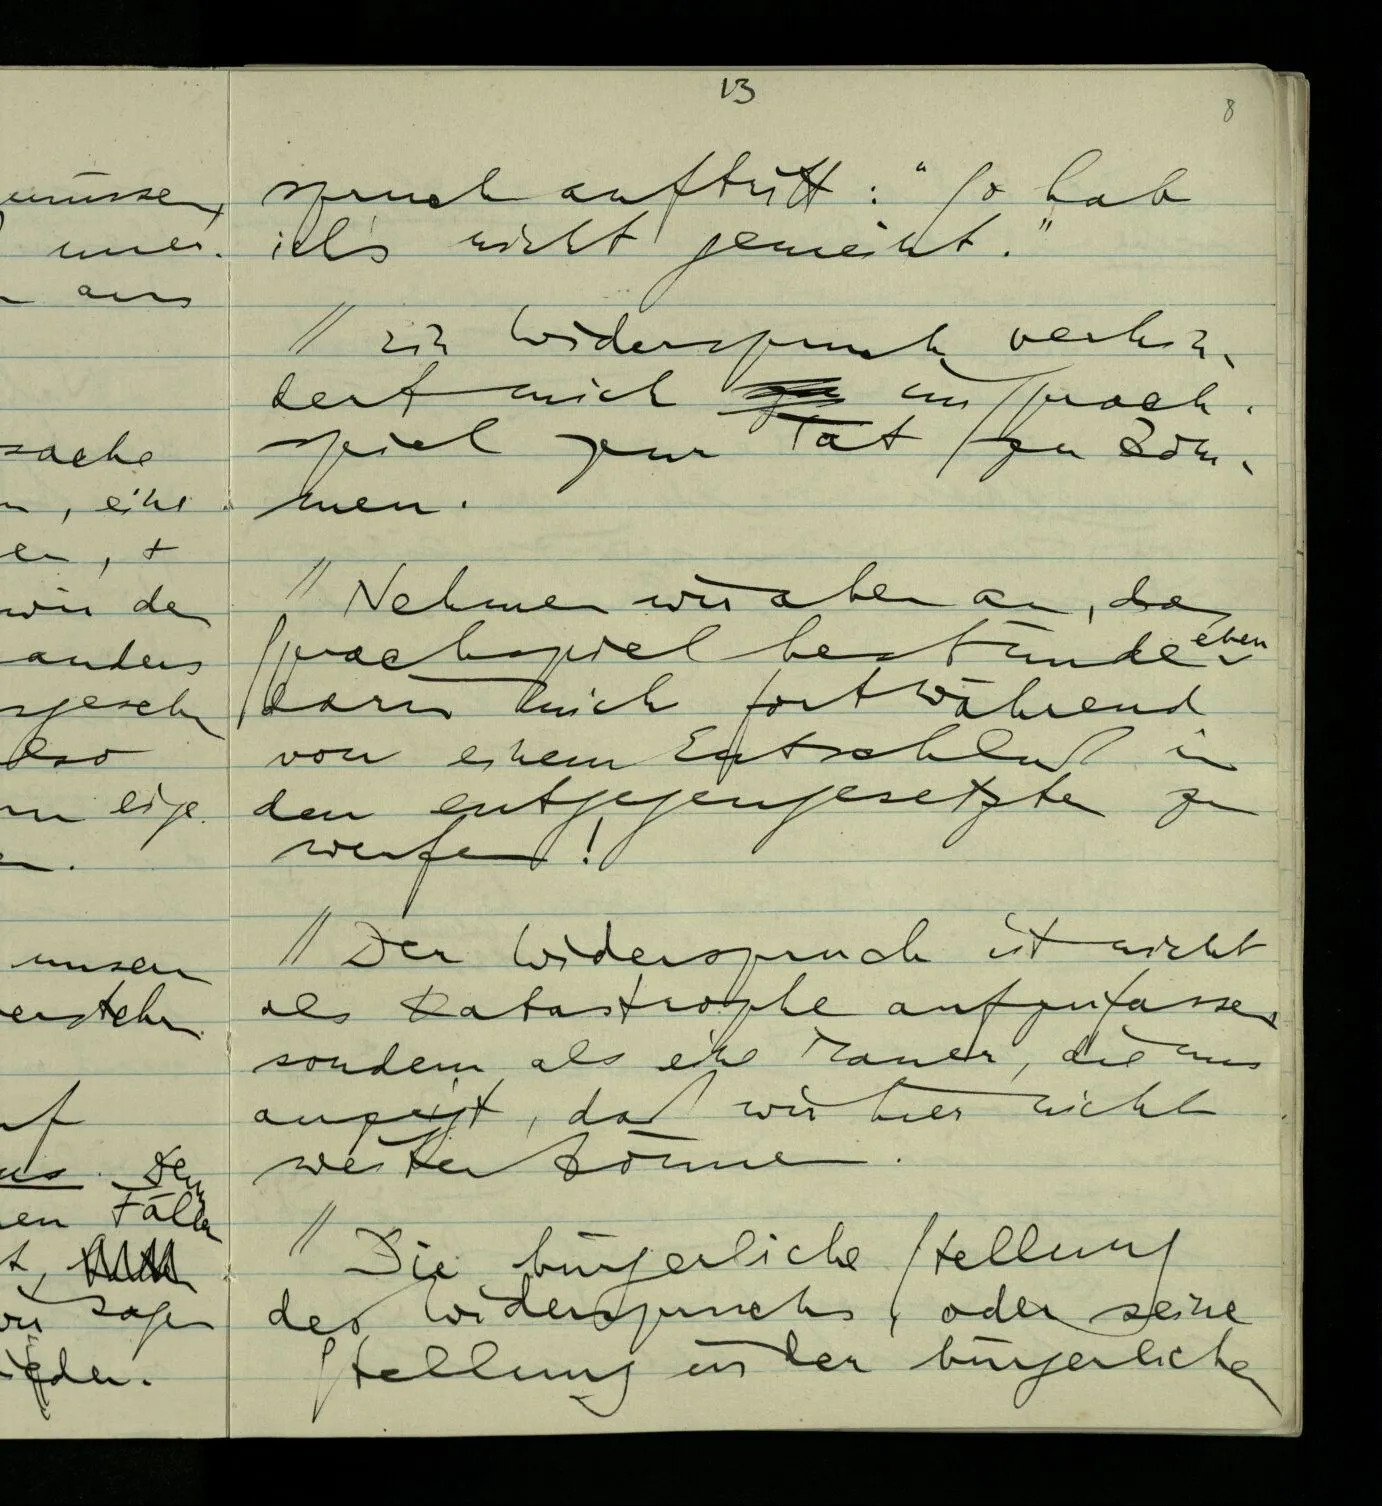 müssen,
aus
sache
, eine
en, +
wir de
anders
also
eige.
unsern
verstehen
Den
Fällen
sagen
13
8
spruch auftritt: "So hab
ich's nicht gemeint."
// Ein Widerspruch verhin-
dert mich im Sprach-
spiel zur Tat zu kom-
men.
// Nehmen wir aber an, das
Sprachspiel bestünde eben
darin mich fortwährend
von einem Entschluß in
den entgegengesetzten zu
werfen!
// Der Widerspruch ist nicht
als Katastrophe aufzufassen
sondern als eine Mauer, die uns
anzeigt, daß wir hier nicht
weiter können.
// Die bürgerliche Stellung
des Widerspruchs, oder seine
Stellung in der bürgerlichen